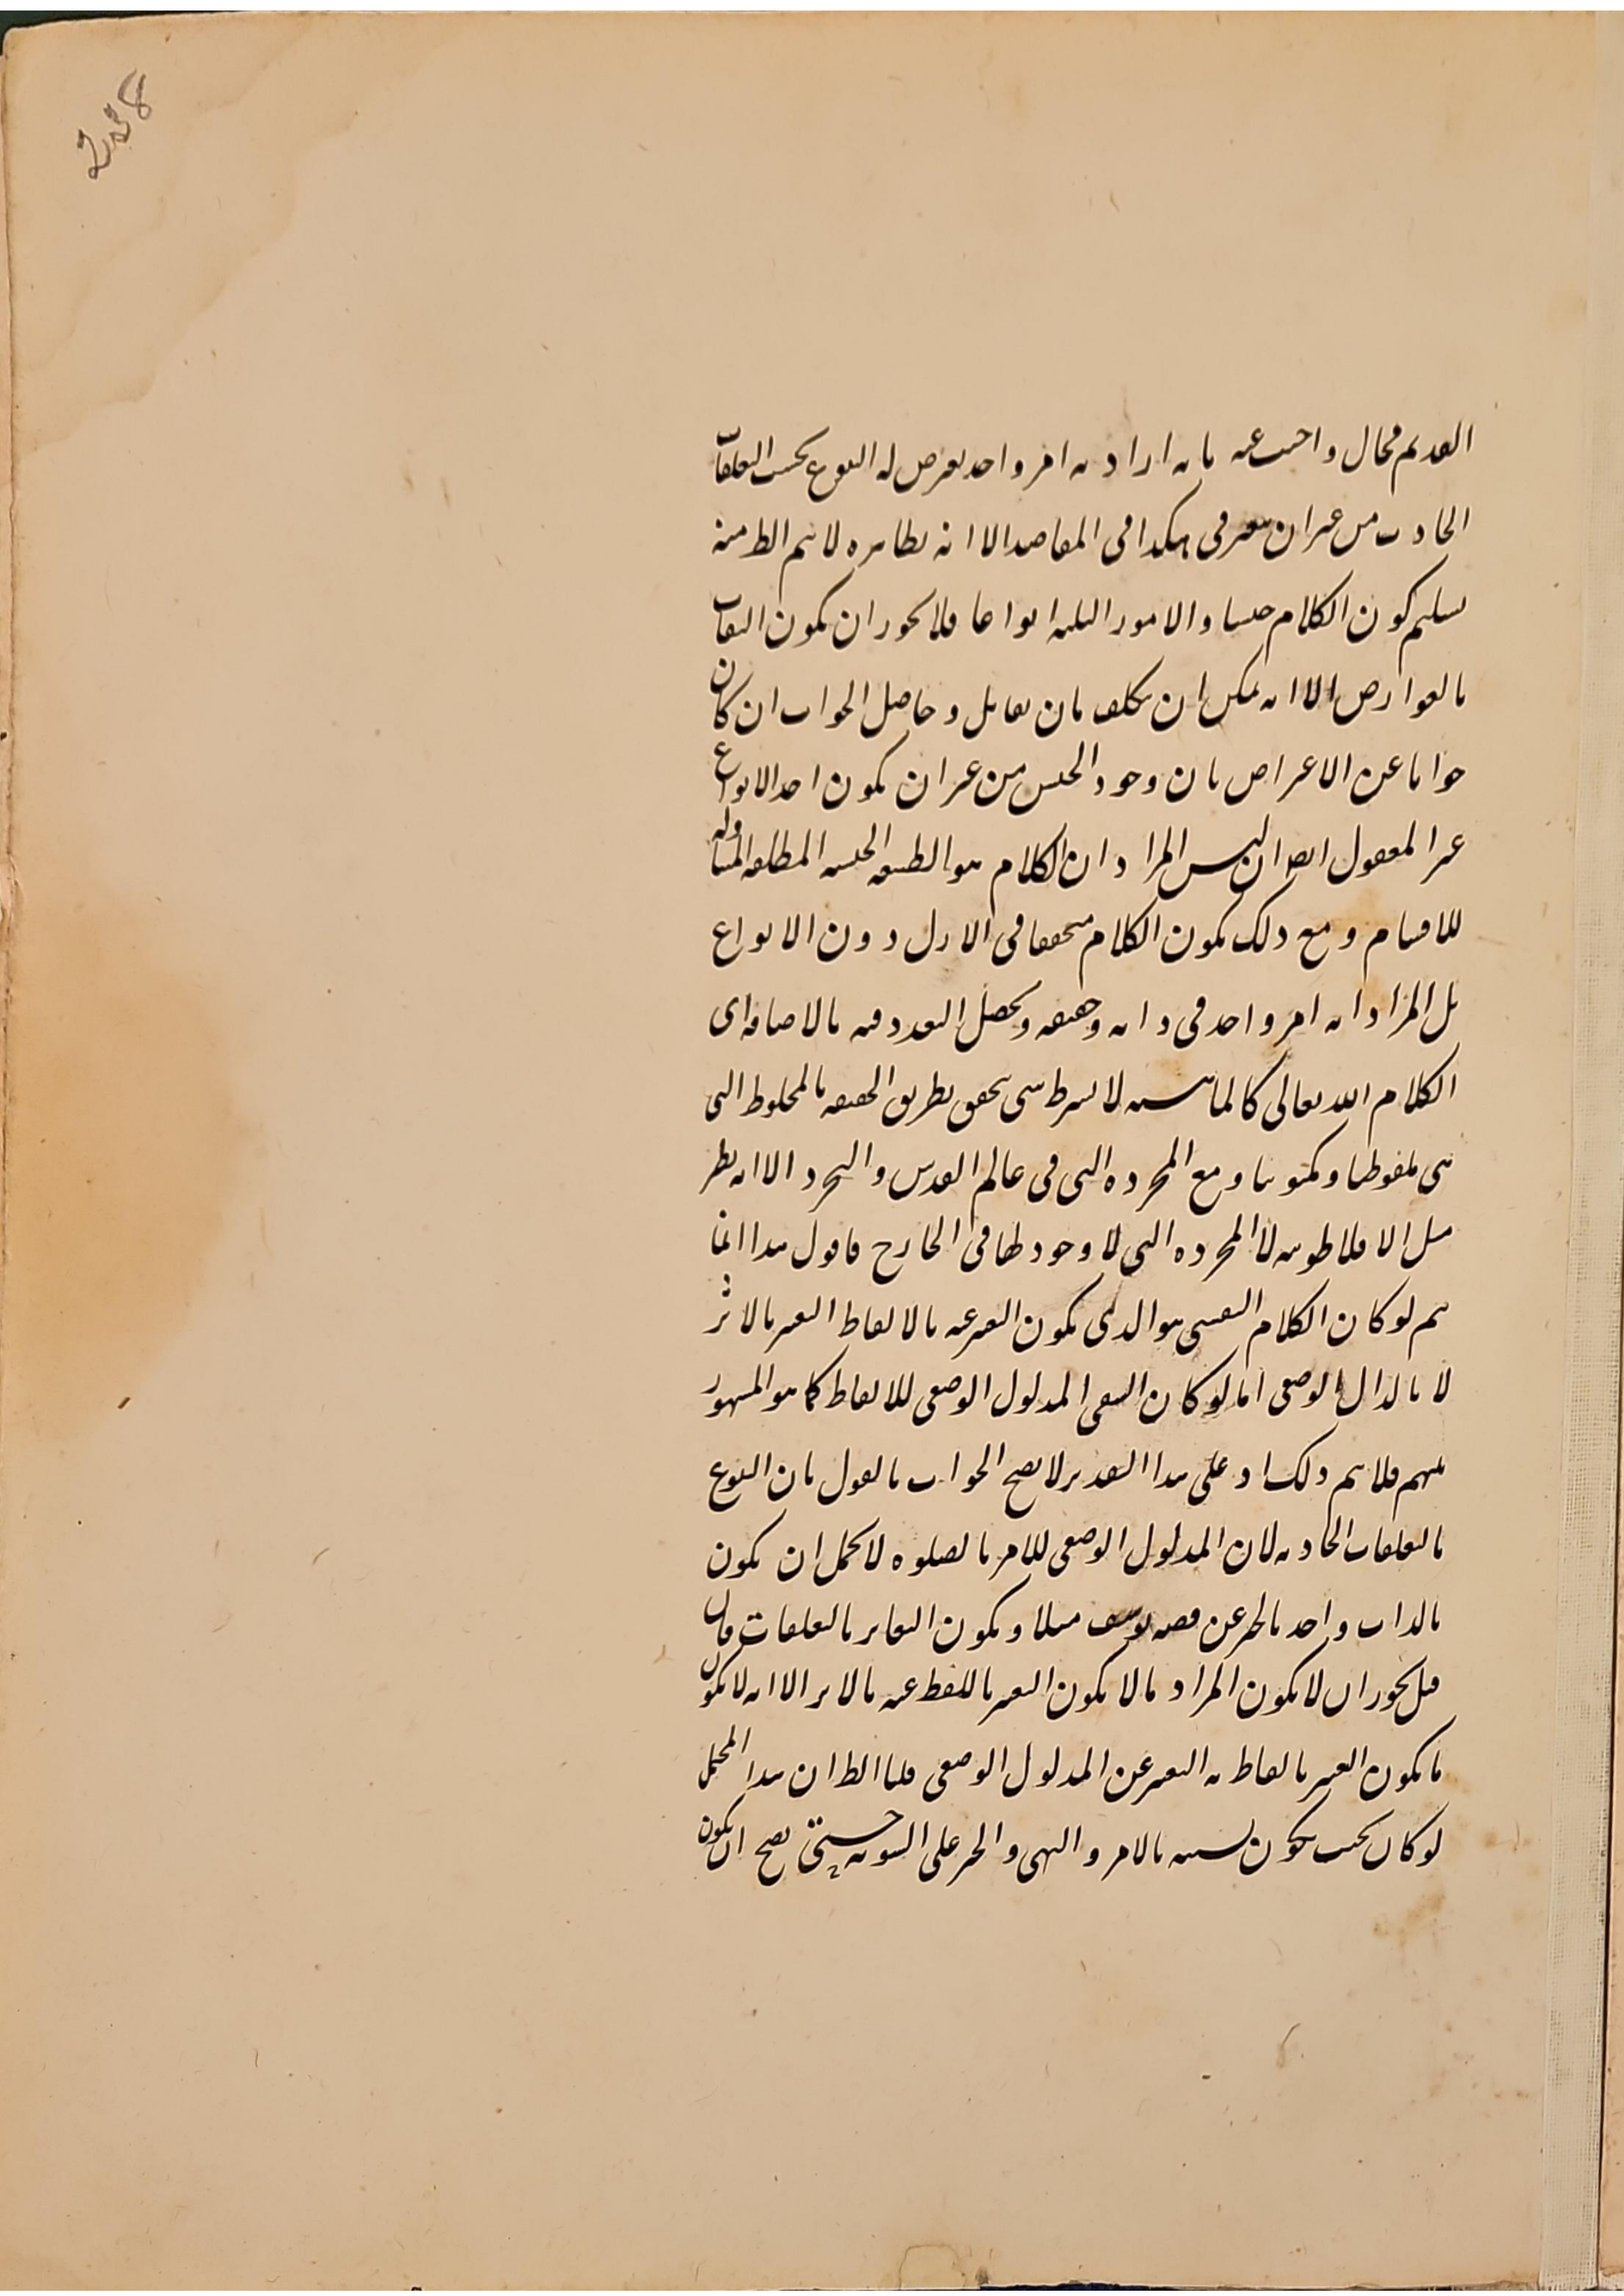 القديم محال واجيب عنه بانه اراد به امر واحد يعرض له التنوع بحسب التعلقات
الحادث من غير ان يتغير في هكذا في المقاصد الا انه بظاهره لا يتم الط منه
تسليم كون الكلام جنسا والامور الثلثة انواعا فلا يجوز ان يكون التقات
بالعوارض الا انه يمكن ان يتكلف بان يقال بل وحاصل الجواب ان كان
جوابا عن الاعتراض بان وجود الجنس من غير ان يكون احد الانواع
غير المعقول ايض ان ليس المراد ان الكلام هو الطبيعة الجنسية المطلقة المتناوله
للاقسام ومع ذلك يكون الكلام متحققا في الازل دون الانواع
بل المراد انه امر واحد في ذاته وحقيقه ويحصل التعدد فيه بالاضافه اى
الكلام الله تعالى كالماهية لا بشرط شى يتحقق بطريق الحقيقه بالمخلوط التى
هى ملفوظها ومكتوبها ومع المجرده التى فى عالم القدس والتجرد الا انه يظهر
مثل الافلاطونيه لا المجرده التى لا وجود لها فى الخارج فاقول هذا انما
يتم لو كان الكلام النفسى هو الذى يكون التعبير عنه بالالفاظ التعبير بالاثر
لا بالدال الوضعى اما لو كان النفسى المدلول الوضعى للالفاظ كما هو المشهور
منهم فلا يتم ذلك اذ على هذا التقدير لا يصح الجواب بالقول بان التنوع
بالتعلقات الحادثه لان المدلول الوضعى للامر بالصلوه لا يحتمل ان يكون
بالذات واحد بالخبر عن قصه يوسف مثلا ويكون التغاير بالتعلقات فان
قيل يجوز ان لا يكون المراد بالا يكون التعبير باللفظ عنه بالاثر الا انه لا يكون
ما يكون التعبير بالفاظ به التعبير عن المدلول الوضعى قلنا الط ان هذا المحتمل
لو كان بحيث يكون نسبته بالامر والنهى والخبر على السويه حتى يصح ان يكون